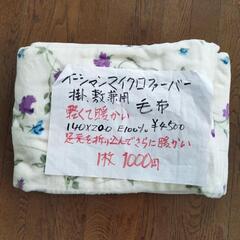 イーシマンマイクロファーバー
掛、敷兼用 毛布
軽くて暖かい
140×200 E100% ¥4500
足元を折り込んでさらに暖かい
1枚 1000円